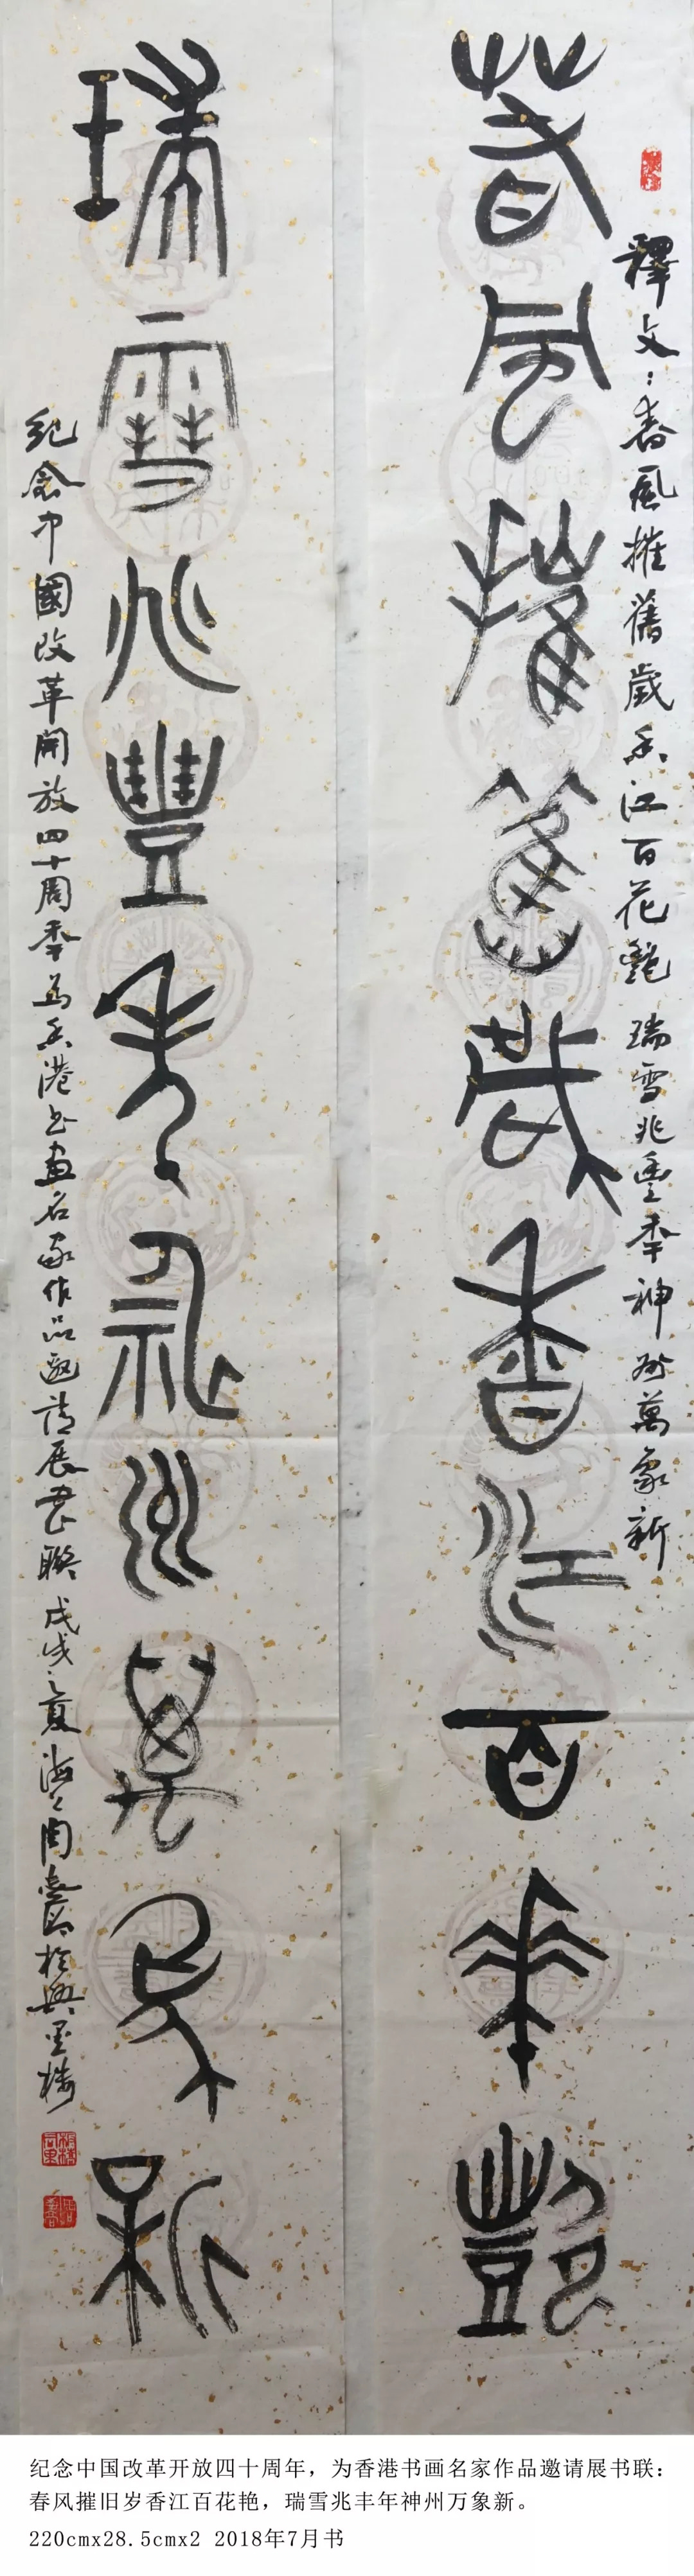 釋文：春風摧舊歲香江百花艷 瑞雪兆豐年神州萬象新
春風摧舊歲香江百花豔
瑞雪兆豐年神州萬象新
紀念中國改革開放四十周年為香港书畫名家作品邀請展書聯 戊戌之夏海上周
於興墨樓
纪念中国改革开放四十周年，为香港书画名家作品邀请展书联：
春风摧旧岁香江百花艳，瑞雪兆丰年神州万象新。
220cmx28.5cmx2 2018年7月书